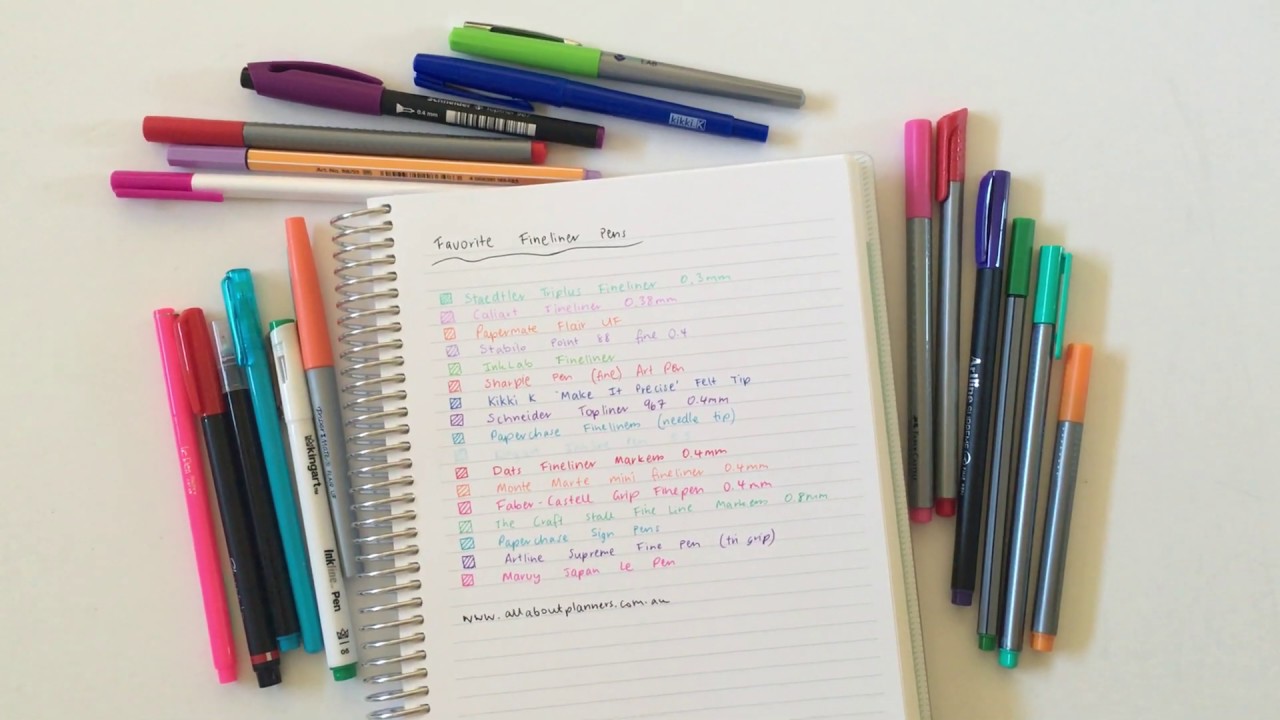 Favorite Fineliner Pens
Staedtler Triplus Fineliner 0.3mm
Caliart Fineliner 0.38mm
Papermate Flair UF
Stabilo Point 88 fine 0.4
InkLab Fineliner
Sharpie Pen (fine) Art Pen
Kikki K 'Make It Precise' Felt Tip
Schneider Topliner 967 0.4mm
Paperchase Fineliners (needle tip)
Dats Fineliner Markers 0.4mm
Monte Marte mini fineliner 0.4mm
Faber-Castell Grip Finepen 0.4mm
The Craft Stall Fine Line Markers 0.8mm
Paperchase Sign Pens
Artline Supreme Fine Pen (tri grip)
Maruy Japan Le Pen
www.allaboutplanners.com.au
LAB
kikki.K
Schneider
0.4 mm
kingart
Inkline Pen
05
Le Pen
Artline SUPREME